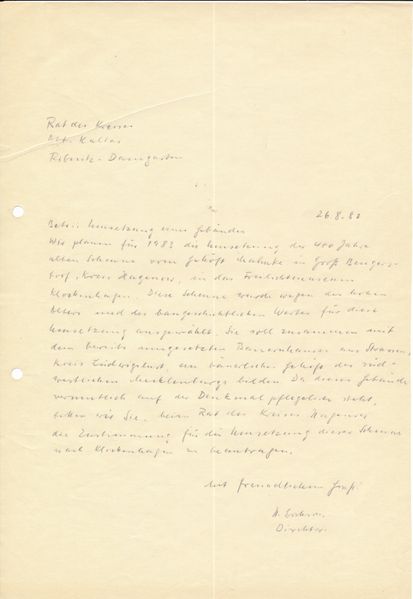 Rat des Kreises
Abt. Kultur
Ribnitz-Damgarten
26.8.82
Betr.: Umsetzung eines Gebäudes
Wir planen für 1983 die Umsetzung der 400 Jahre
alten Scheune vom Gehöft Mahnke in Groß Bengers-
torf, Kreis Hagenow, in das Freilichtmuseum
Klockenhagen. Diese Scheune wurde wegen des hohen
Alters und des baugeschichtlichen Wertes für diese
Umsetzung ausgewählt. Sie soll zusammen mit
dem bereits umgesetzten Bauernhaus aus Strassen,
Kreis Ludwigslust, ein bäuerliches Gehöft des süd-
westlichen Mecklenburgs bilden. Da dieses Gebäude
vermutlich auf der Denkmalpflegeliste steht,
bitten wir Sie, beim Rat des Kreises Hagenow
die Zustimmung für die Umsetzung dieser Scheune
nach Klockenhagen zu beantragen.
Mit freundlichem Gruß!
Direktor